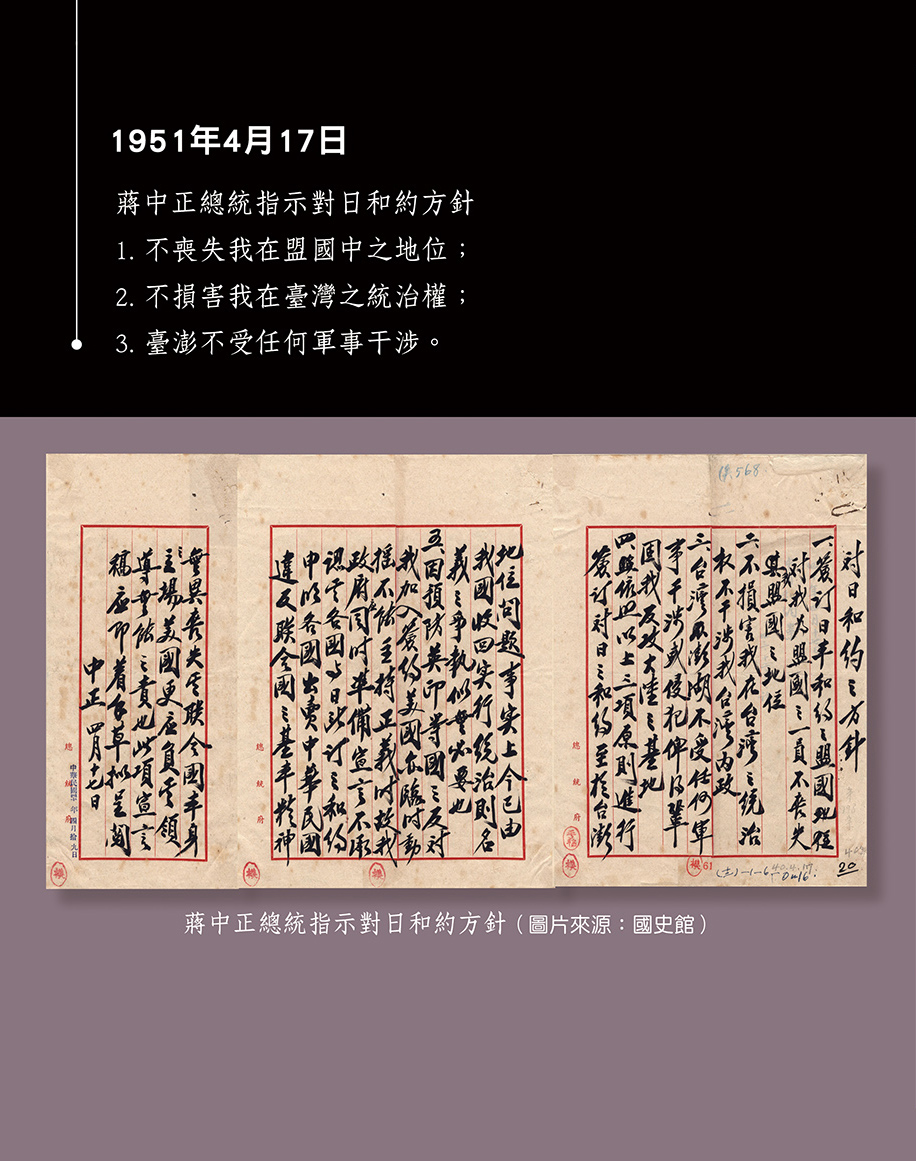 1951年4月17日
蔣中正總統指示對日和約方針
1. 不喪失我在盟國中之地位；
2. 不損害我在臺灣之統治權；
3. 臺澎不受任何軍事干涉。
對日和約之方針
一簽訂日本和約之盟國地位
對我為盟國之一員不喪失
我盟國之地位
二不損害我在台灣之統治
权不干涉我台灣內政
三台灣及澎湖不受任何軍
事干涉或侵犯俾得鞏
固我反攻大陸之基地
四依照以上三項原則進行
簽訂對日之和約至於台澎
地位問題事实上今已由
我國收回实行統治則名
義之爭執似無必要也
五、英印等國之反對
我加入簽約美國在臨時動
搖不能主持正義時故我
政府同時準備宣言不承
認其各國与日所訂之和約
申明各國出賣中華民國
違反聯合國之基本精神
無異喪失其聯合國本身
立場美國更应負其領
導無能之責也此項宣言
稿应即着手草擬呈閱
中正 四月十七日
總統府
總統府
總統府
蔣中正總統指示對日和約方針（圖片來源：國史館）